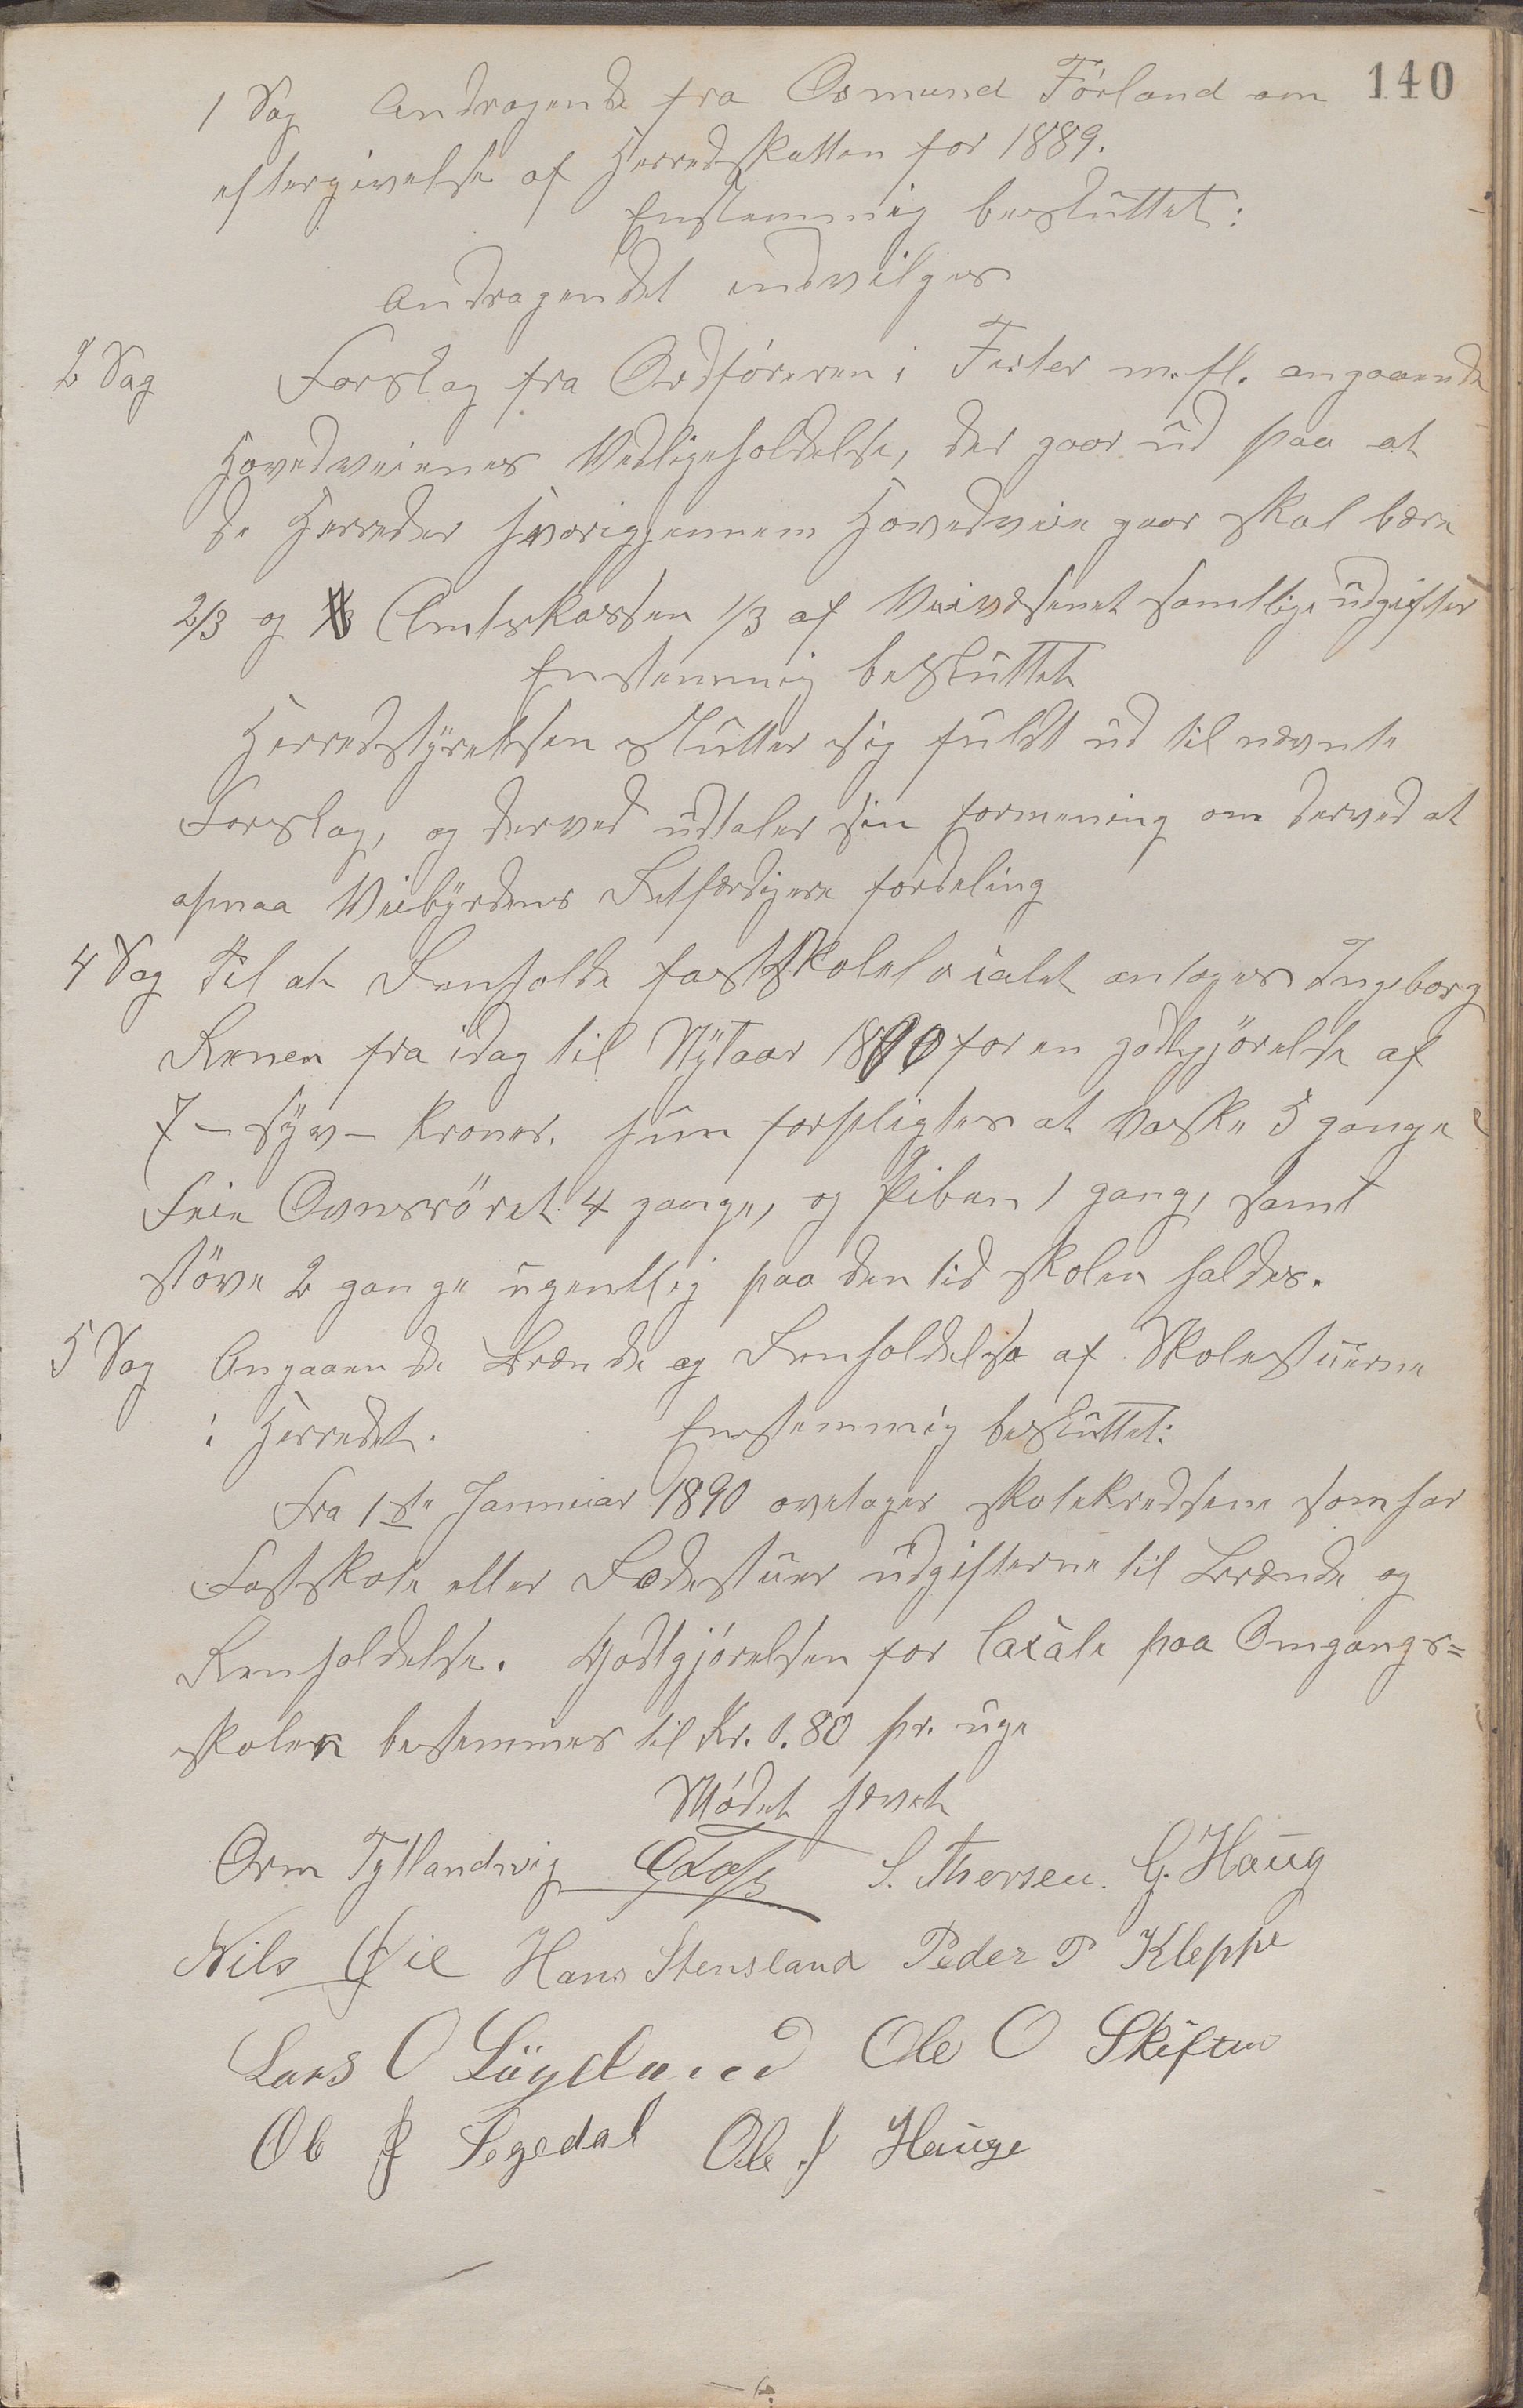 140
1 Sag Andragende fra Osmund Förland om
eftergivelse af Herredskatten for 1889.
Enstemmig besluttet:
Andragendet indvilges
2 Sag Forslag fra Ordföreren i Fister m.fl. angaaende
Hovedveienes Vedligeholdelse, der gaar ud paa at
de Herreder hvorigjennem Hovedveie gaar skal bære
2/3 og Amtskassen 1/3 af Veivæsenet samtlige udgifter
Enstemmig besluttet
Herredstyrelsen slutter sig fuldt ud til nævnte
Forslag, og derved udtaler sin formening om derved at
opnaa Veibyrdens Retfærdigere fordeling
4 Sag Til at Renholde fastskolelocalet antages Ingeborg
fra idag til Nytaar 1890 for en godtgjörelse af
7 – syv – Kroner. hun forpligtes at vaske 3 gange
Feie Ovnsröret 4 gange, og Piben 1 gang, samt
støve 2 gange ugentlig paa den tid skolen holdes.
5 Sag Angaaende Brænde og Renholdelse af Skolestuerne
i Herredet. Enstemmig besluttet:
Fra 1ste Januar 1890 overtager skolekredsene som har
Fastskole eller Ledestuer udgifterne til Brænde og
Renholdelse. Godtgjörelsen for locale paa Omgangs=
skolen bestemmes til Kr. 1.80 pr. uge
Mödet hævet
Orm Tytlandsvig S. Thorsen. G. Haug
Nils Øie Hans Stensland Peder P Kleppe
Lars O Ole O Skiftun
Ole Segedal Ole J Hauge